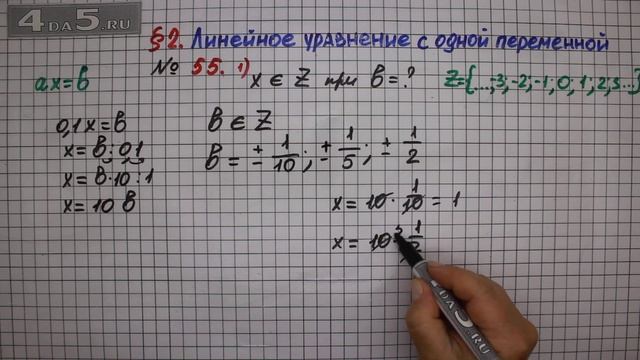 4DA5.RU
§2. Линейное уравнение с одной переменной
№ 55. 1) x ∈ Z при в = ?
Z={...,-3;-2;-1;0;1;2;3...}
ax=в
0,1x=в
x=в:0,1
x=в·10:1
x=10 в
в ∈ Z
в = ± 1/10; ± 1/5; ± 1/2
x = 10 · 1/10 = 1
x = 10 · 1/2